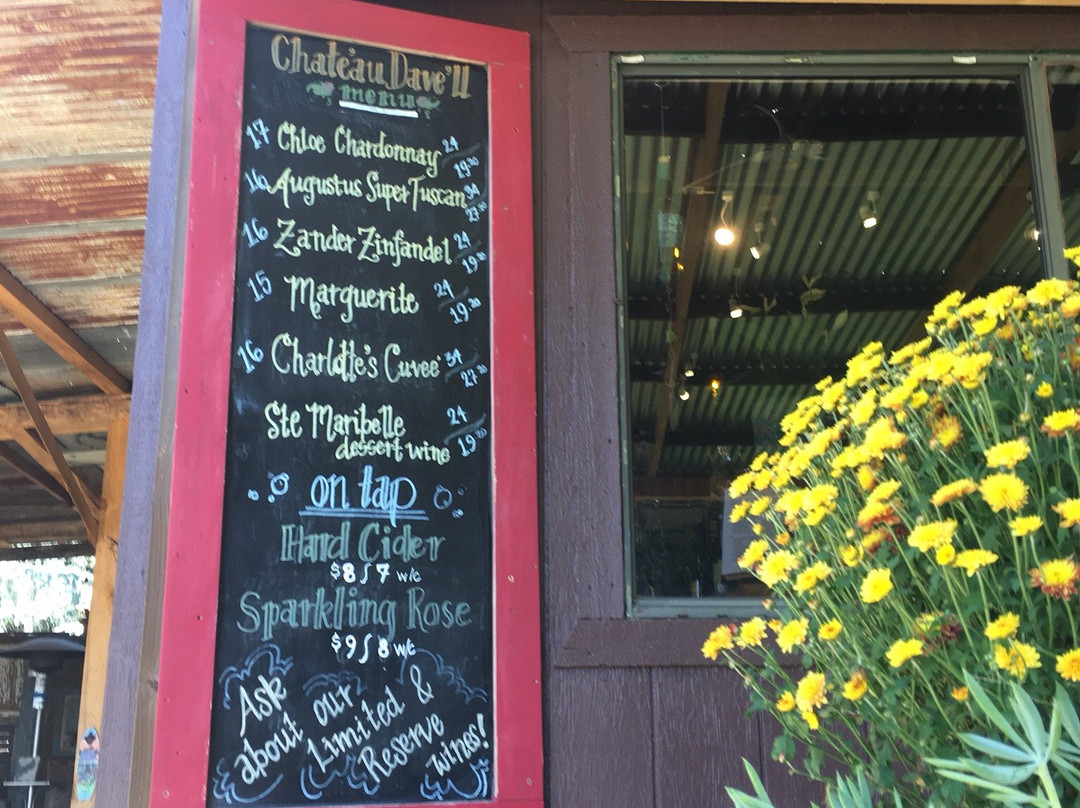 Chateau Dave'll
menu
17 Chloe Chardonnay 24 19.20
16 Augustus Super Tuscan 34
16 Zander Zinfandel 24 19.20
15 Marguerite 24 19.20
16 Charlotte's Cuvee 34 27.20
Ste Maribelle 24
dessert wine 19.20
on tap
Hard Cider
$8/7 w/c
Sparkling Rose
$9/8 w/c
Ask about our Limited & Reserve wines!